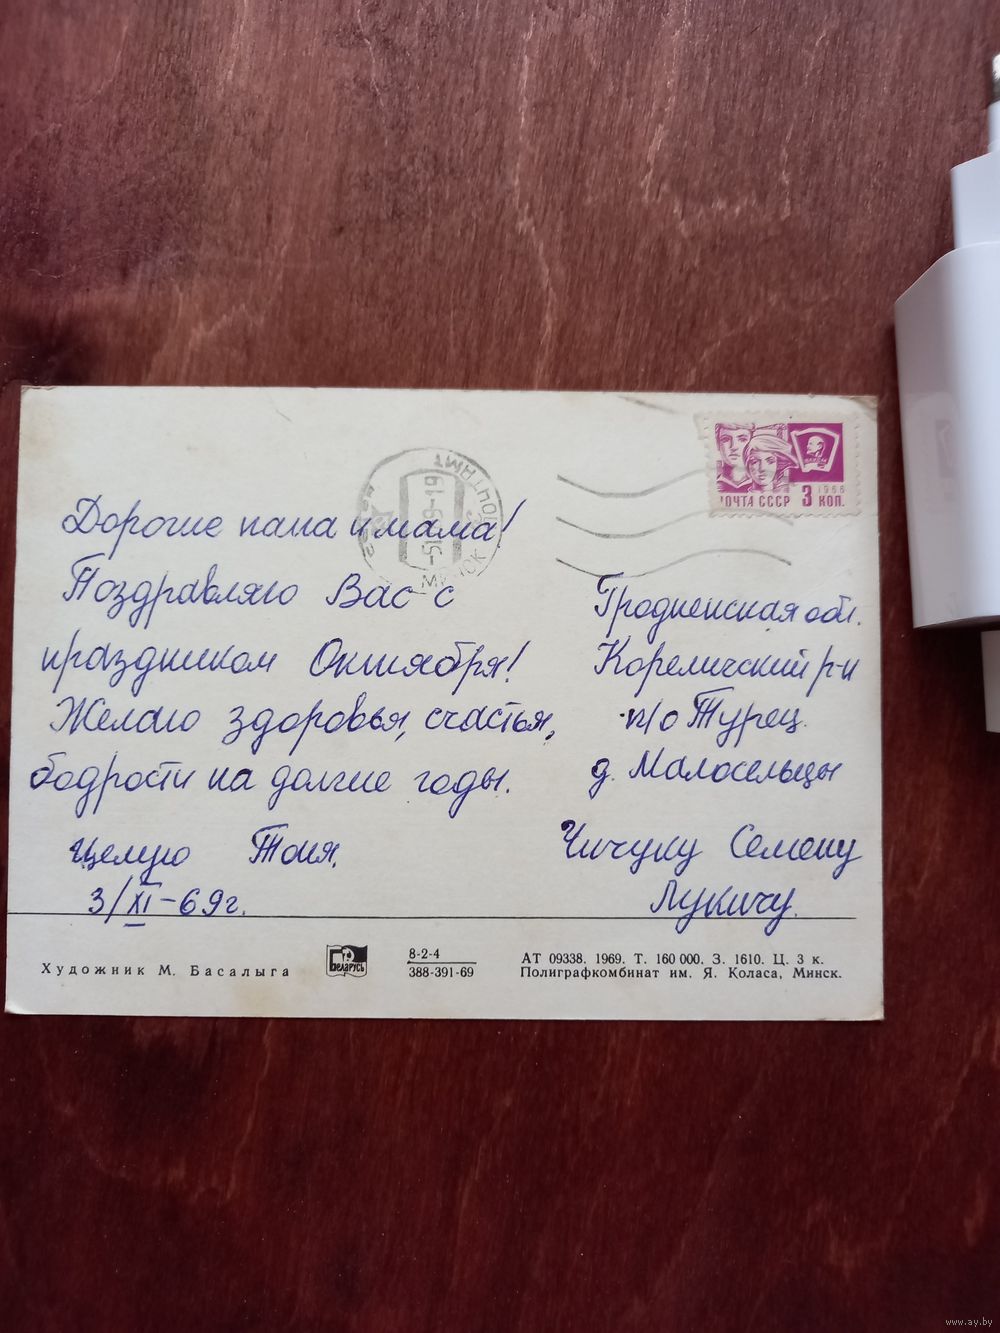 Дорогие папа и мама!
Поздравляю Вас с
праздником Октября!
Желаю здоровья, счастья,
бодрости на долгие годы.
целую Тоня.
3/XI-69г.
ПОЧТА СССР 3 1966 КОП.
ПОЧТАМТ
МИНСК
Гродненская обл.
Кореличский р-н
п/о Турец.
д. Малосельцы
Чичуку Семену
Лукичу.
Художник М. Басалыга
Беларусь
8-2-4
388-391-69
АТ 09338. 1969. Т. 160 000. З. 1610. Ц. 3 к.
Полиграфкомбинат им. Я. Коласа, Минск.
www.ay.by